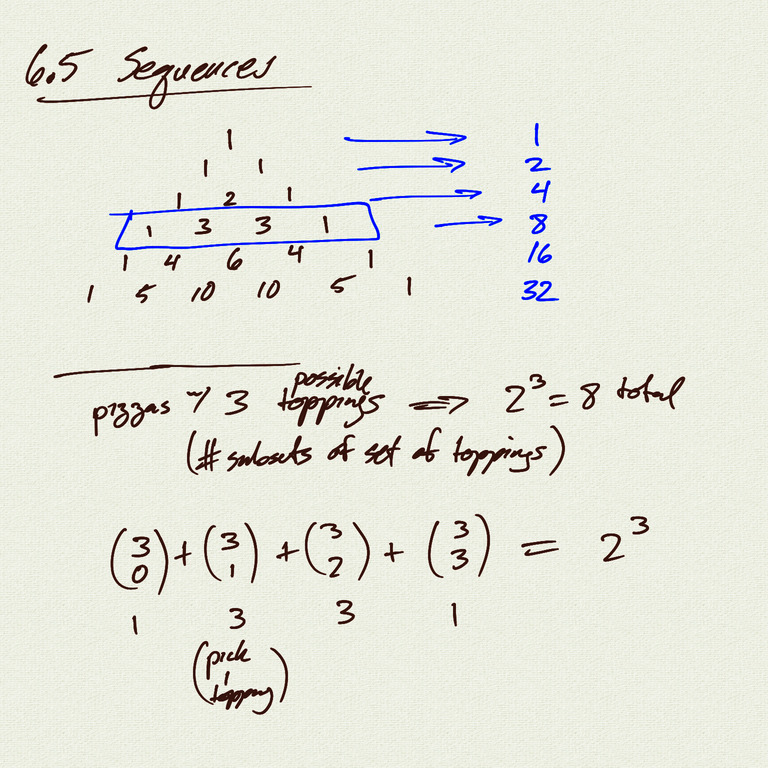 6.5 Sequences
1 → 1
1 1 → 2
1 2 1 → 4
1 3 3 1 → 8
1 4 6 4 1 16
1 5 10 10 5 1 32
pizzas w/ 3 possible toppings ⟹ 2^3 = 8 total
(# subsets of set of toppings)
(3 0) + (3 1) + (3 2) + (3 3) = 2^3
1 3 3 1
(pick
1
topping)